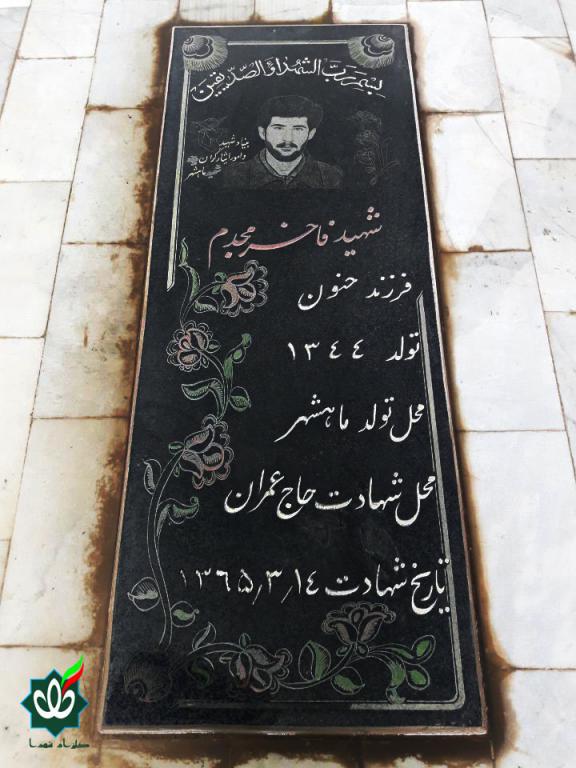 بسم رب الشهداء و الصدیقین
بنیاد شهید
و امور ایثارگران
ماهشهر
شهید فاخر مجدم
فرزند حنون
تولد ۱۳۴۴
محل تولد ماهشهر
محل شهادت حاج عمران
تاریخ شهادت ۱۳۶۵/۳/۱۴